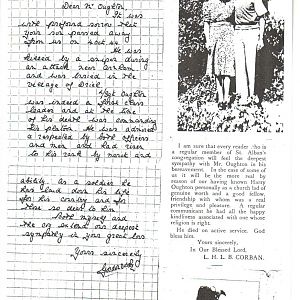 Dear Mr Oughton
It was
with profound sorrow that
your son passed away
from us on Oct
He was
killed by a sniper during
an attack near
and was buried in the
village of
L/Sgt Oughton
was indeed a first class
leader and at the time
of his death was commanding
his platoon. He was admired
& respected by both officers
and men and had risen
to his rank by merit and
ability. As a soldier he
has laid down his life
for his country and for
those so dear to him
Both myself and
the CO extend our deepest
sympathy in your great loss
Yours sincerely
I am sure that every reader who is
a regular member of St. Alban's
congregation will feel the deepest
sympathy with Mr. Oughton in his
bereavement. In the case of some of
us it will be the more real by
reason of our having known Harry
Oughton personally as a church lad of
genuine worth and a good fellow,
friendship with whom was a real
privilege and pleasure. A regular
communicant he had all the happy
kindliness associated with one whose
religion is right.
He died on active service. God
bless him.
Yours sincerely,
In Our Blessed Lord,
L. H. L. B. CORBAN.